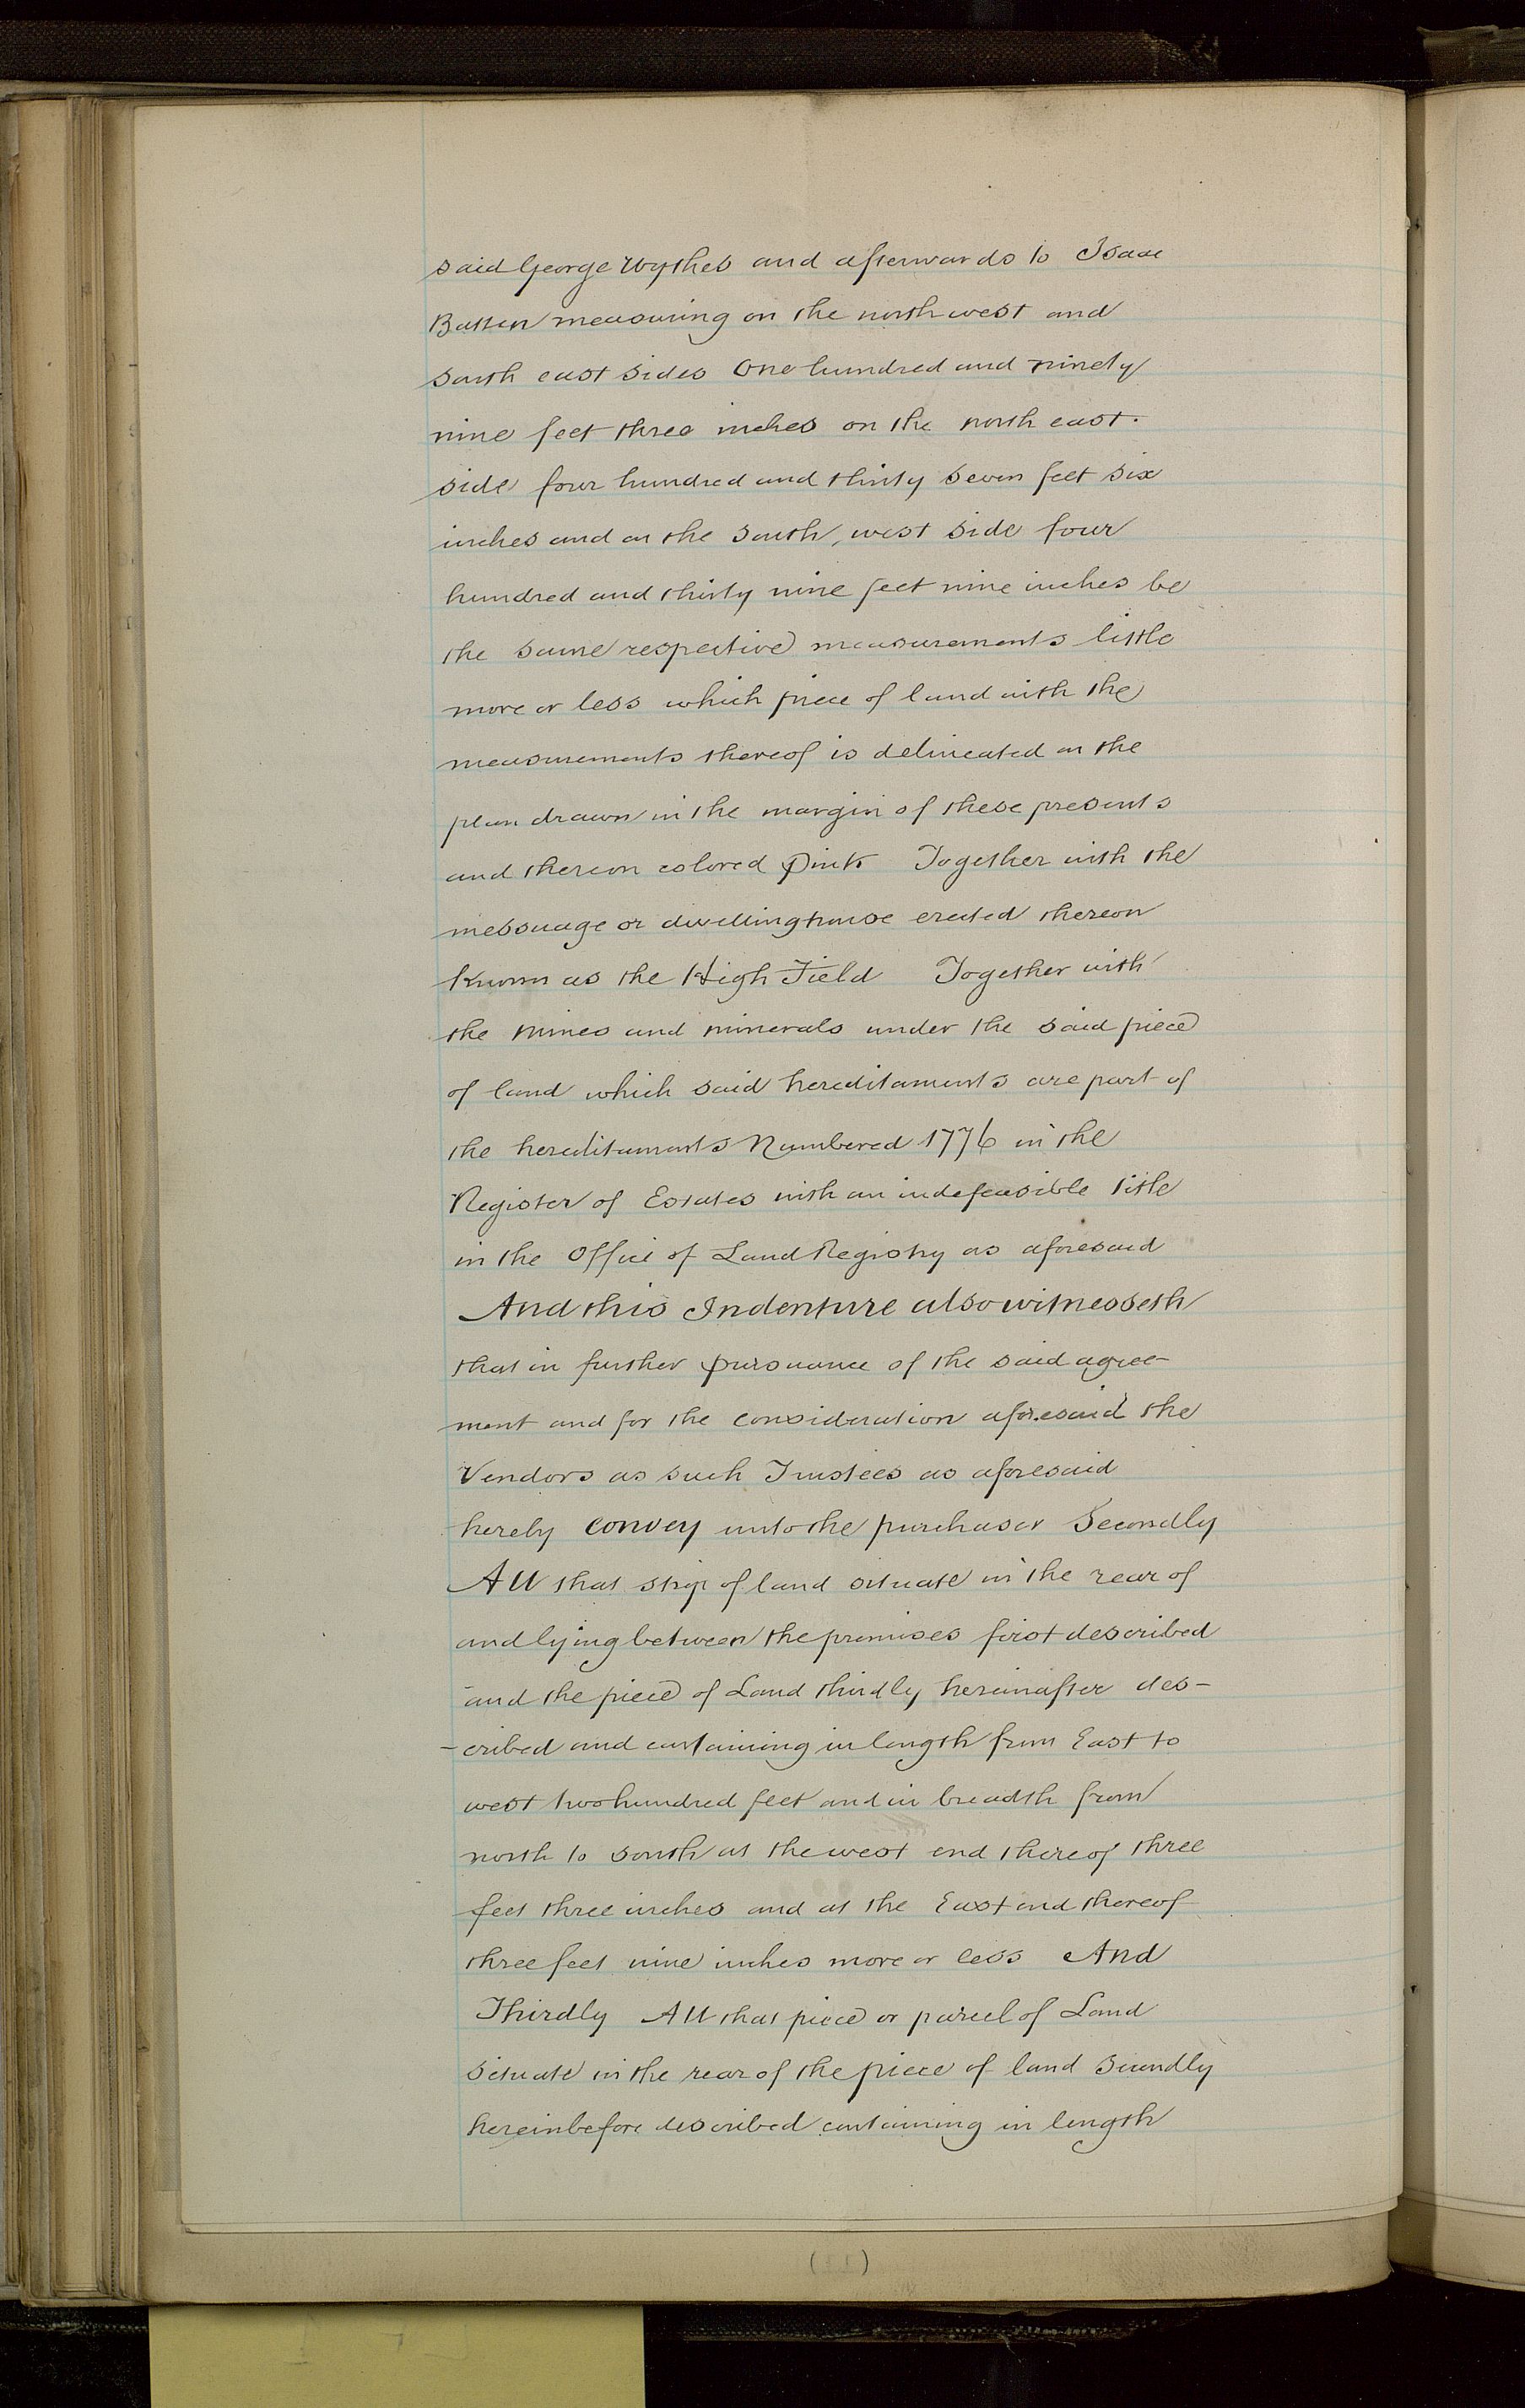 said George Wythes and afterwards to Isaac
Batten measuring on the north west and
south east sides One hundred and ninety
nine feet three inches on the north east.
side four hundred and thirty seven feet six
inches and on the south, west side four
hundred and thirty nine feet nine inches be
the same respective measurements little
more or less which piece of land with the
measurements thereof is delineated on the
plan drawn in the margin of these presents
and thereon colored Pink Together with the
messuage or dwellinghouse erected thereon
Known as the High Field Together with
the mines and minerals under the said piece
of land which said hereditaments are part of
the hereditaments Numbered 1776 in the
Register of Estates with an indefeasible title
in the Office of Land Registry as aforesaid
And this Indenture also witnesseth
that in further pursuance of the said agree-
ment and for the consideration aforesaid the
Vendors as such Trustees as aforesaid
hereby convey unto the purchaser Secondly
All that strip of land situate in the rear of
and lying between the premises first described
and the piece of Land thirdly hereinafter des-
-cribed and containing in length from East to
west two hundred feet and in breadth from
north to south at the west end thereof three
feet three inches and at the East end thereof
three feet nine inches more or less And
Thirdly All that piece or parcel of Land
situate in the rear of the piece of land secondly
hereinbefore described containing in length